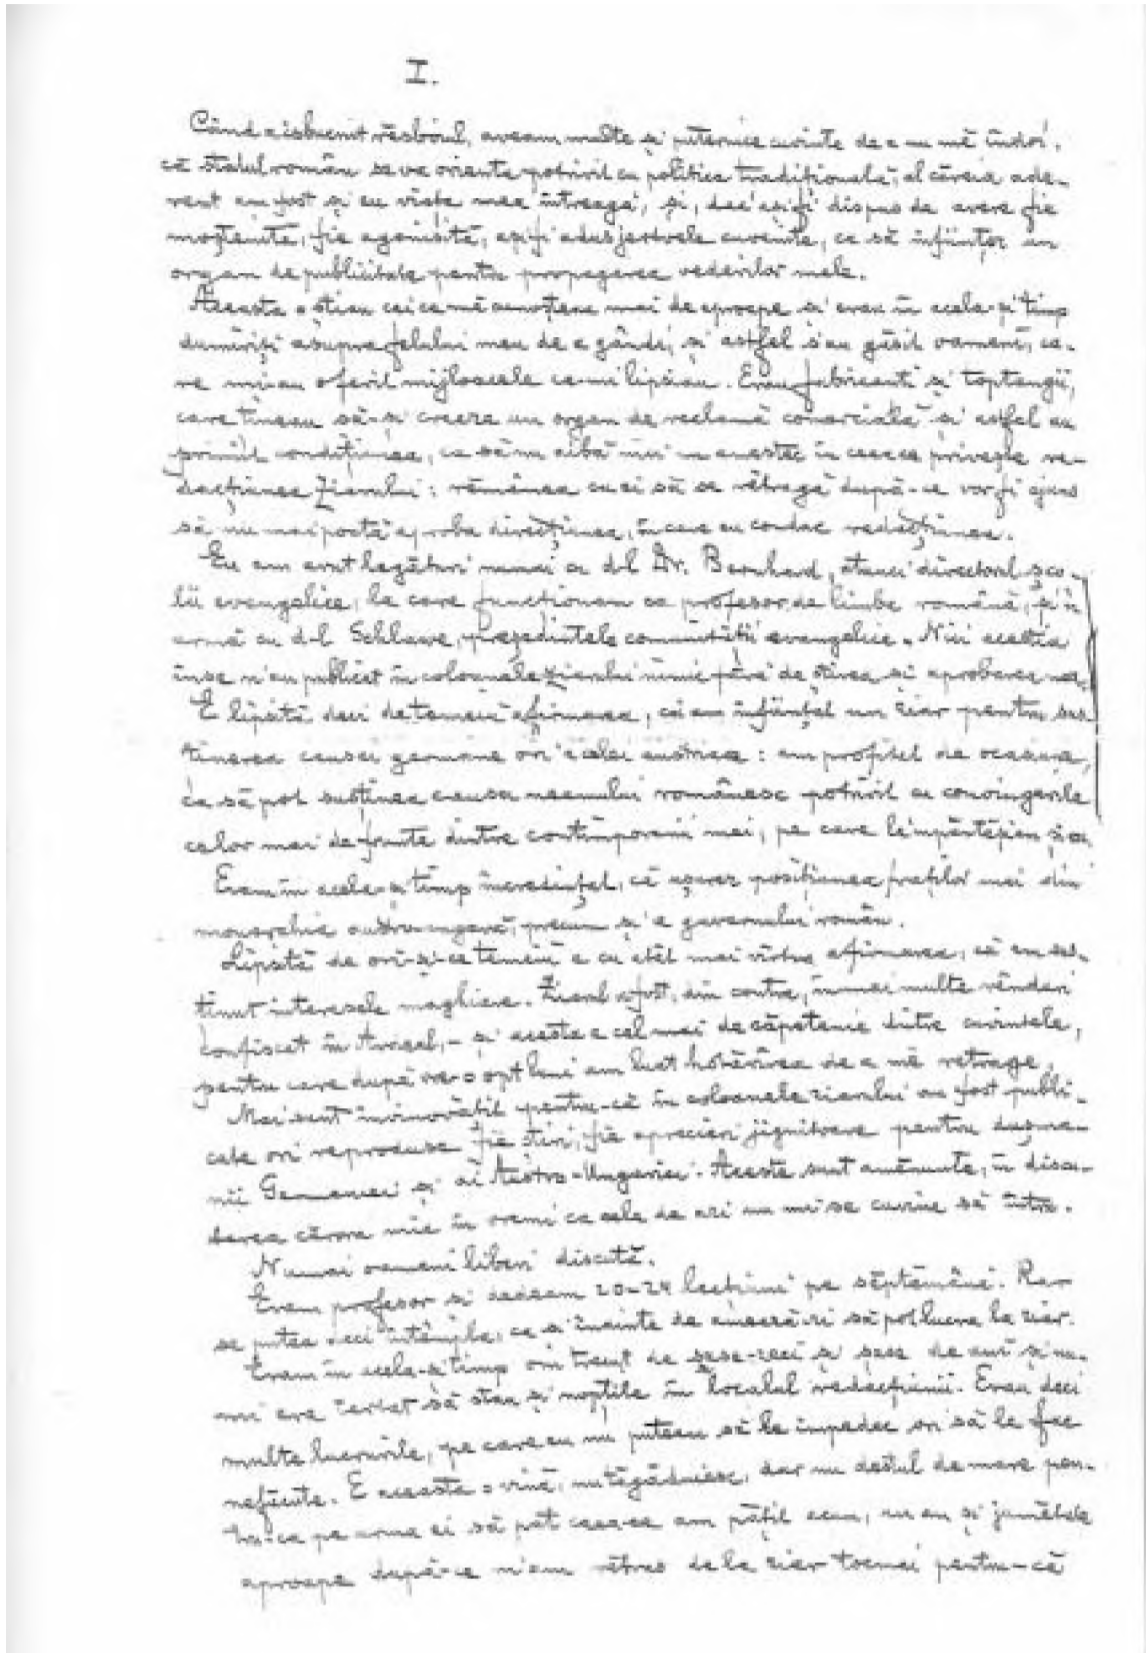 I.
Când a isbucnit rĕsboiul, aveam multe și puternice cuvinte de a nu mĕ îndoi,
că statul român se va orienta potrivit cu politica tradițională, al căreia ade-
rent am fost și eu viața mea întreagă, și, dac'ași fi dispus de avere fie
moștenită, fie agonisită, ași fi adus jertvele cuvenite, ca să înființez un
organ de publicitate pentru propagarea vederilor mele.
Aceasta o știau cei ce mĕ cunoșteau mai de aproape și erau în acela-și timp
dumiriți asupra felului meu de a gândi, și astfel s'au găsit oameni, ca-
re mi-au oferit mijloacele ce-mi lipsiau. Erau fabricanți și toptangii,
care țineau să-și creeze un organ de reclamă comercială și astfel au
primit condițiunea, ca să nu aibă nici un amestec în ceea ce privește re-
dacțiunea ziarului: rĕmânea ca ei să se rĕtragă după-ce vor fi ajuns
să nu mai poată aproba direcțiunea, în care eu conduc redacțiunea.
Eu am avut legături numai cu d-l Dr. Bernhard, atunci directorul șco-
lii evangelice, la care funcționam ca profesor de limba română, și'n
urmă cu d-l Schlawe, președintele comunității evangelice. Nici aceștia
însă n'au publicat în coloanele ziarului nimic fără de știrea și aprobarea mea.
E lipsită deci de temeiu afirmarea, că am înființat un ziar pentru sus-
ținerea causei germane ori a celei austriace: am profitat de ocasiune,
ca să pot susținea causa neamului românesc potrivit cu convingerile
celor mai de frunte dintre contimporanii mei, pe care le împărtășiam și eu.
Eram în acela-și timp încredințat, că ușurez pozițiunea fraților mei din
monarchia austro-ungară, precum și a guvernului român.
Lipsită de ori-și-ce temeiu e cu atât mai vîrtos afirmarea, că am sus-
ținut interesele maghiare. Ziarul a fost, din contra, în mai multe rânduri
confiscat în Ardeal, - și aceasta e cel mai de căpetenie dintre cuvintele,
pentru care după vre-o opt luni am luat hotărîrea de a mĕ retrage.
Mai sunt învinovățit pentru-că în coloanele ziarului au fost publi-
cate ori reproduse fie știri, fie aprecieri jignitoare pentru dușma-
nii Germaniei și ai Austro-Ungariei. Aceste sunt amănunte, în discu-
tarea cărora mie în vremi ca cele de azi nu mi se cuvine să intru.
Numai oameni liberi discută.
Eram profesor și dedeam 20-24 lecțiuni pe sĕptămână. Rar
se putea deci întâmpla, ca și înainte de ameazăzi să pot lucra la ziar.
Eram în acela-și timp om trecut de șase-zeci și șase de ani și nu-
mi era iertat să stau și nopțile în localul redacțiunii. Erau deci
multe lucrurile, pe care eu nu puteam să le împedec ori să le fac
nefăcute. E aceasta o vină, nu tăgăduiesc, dar nu destul de mare pen-
tru-ca pe urma ei să pat ceea-ce am pățit acum, un an și jumătate
aproape după-ce m'am rĕtras de la ziar tocmai pentru-că